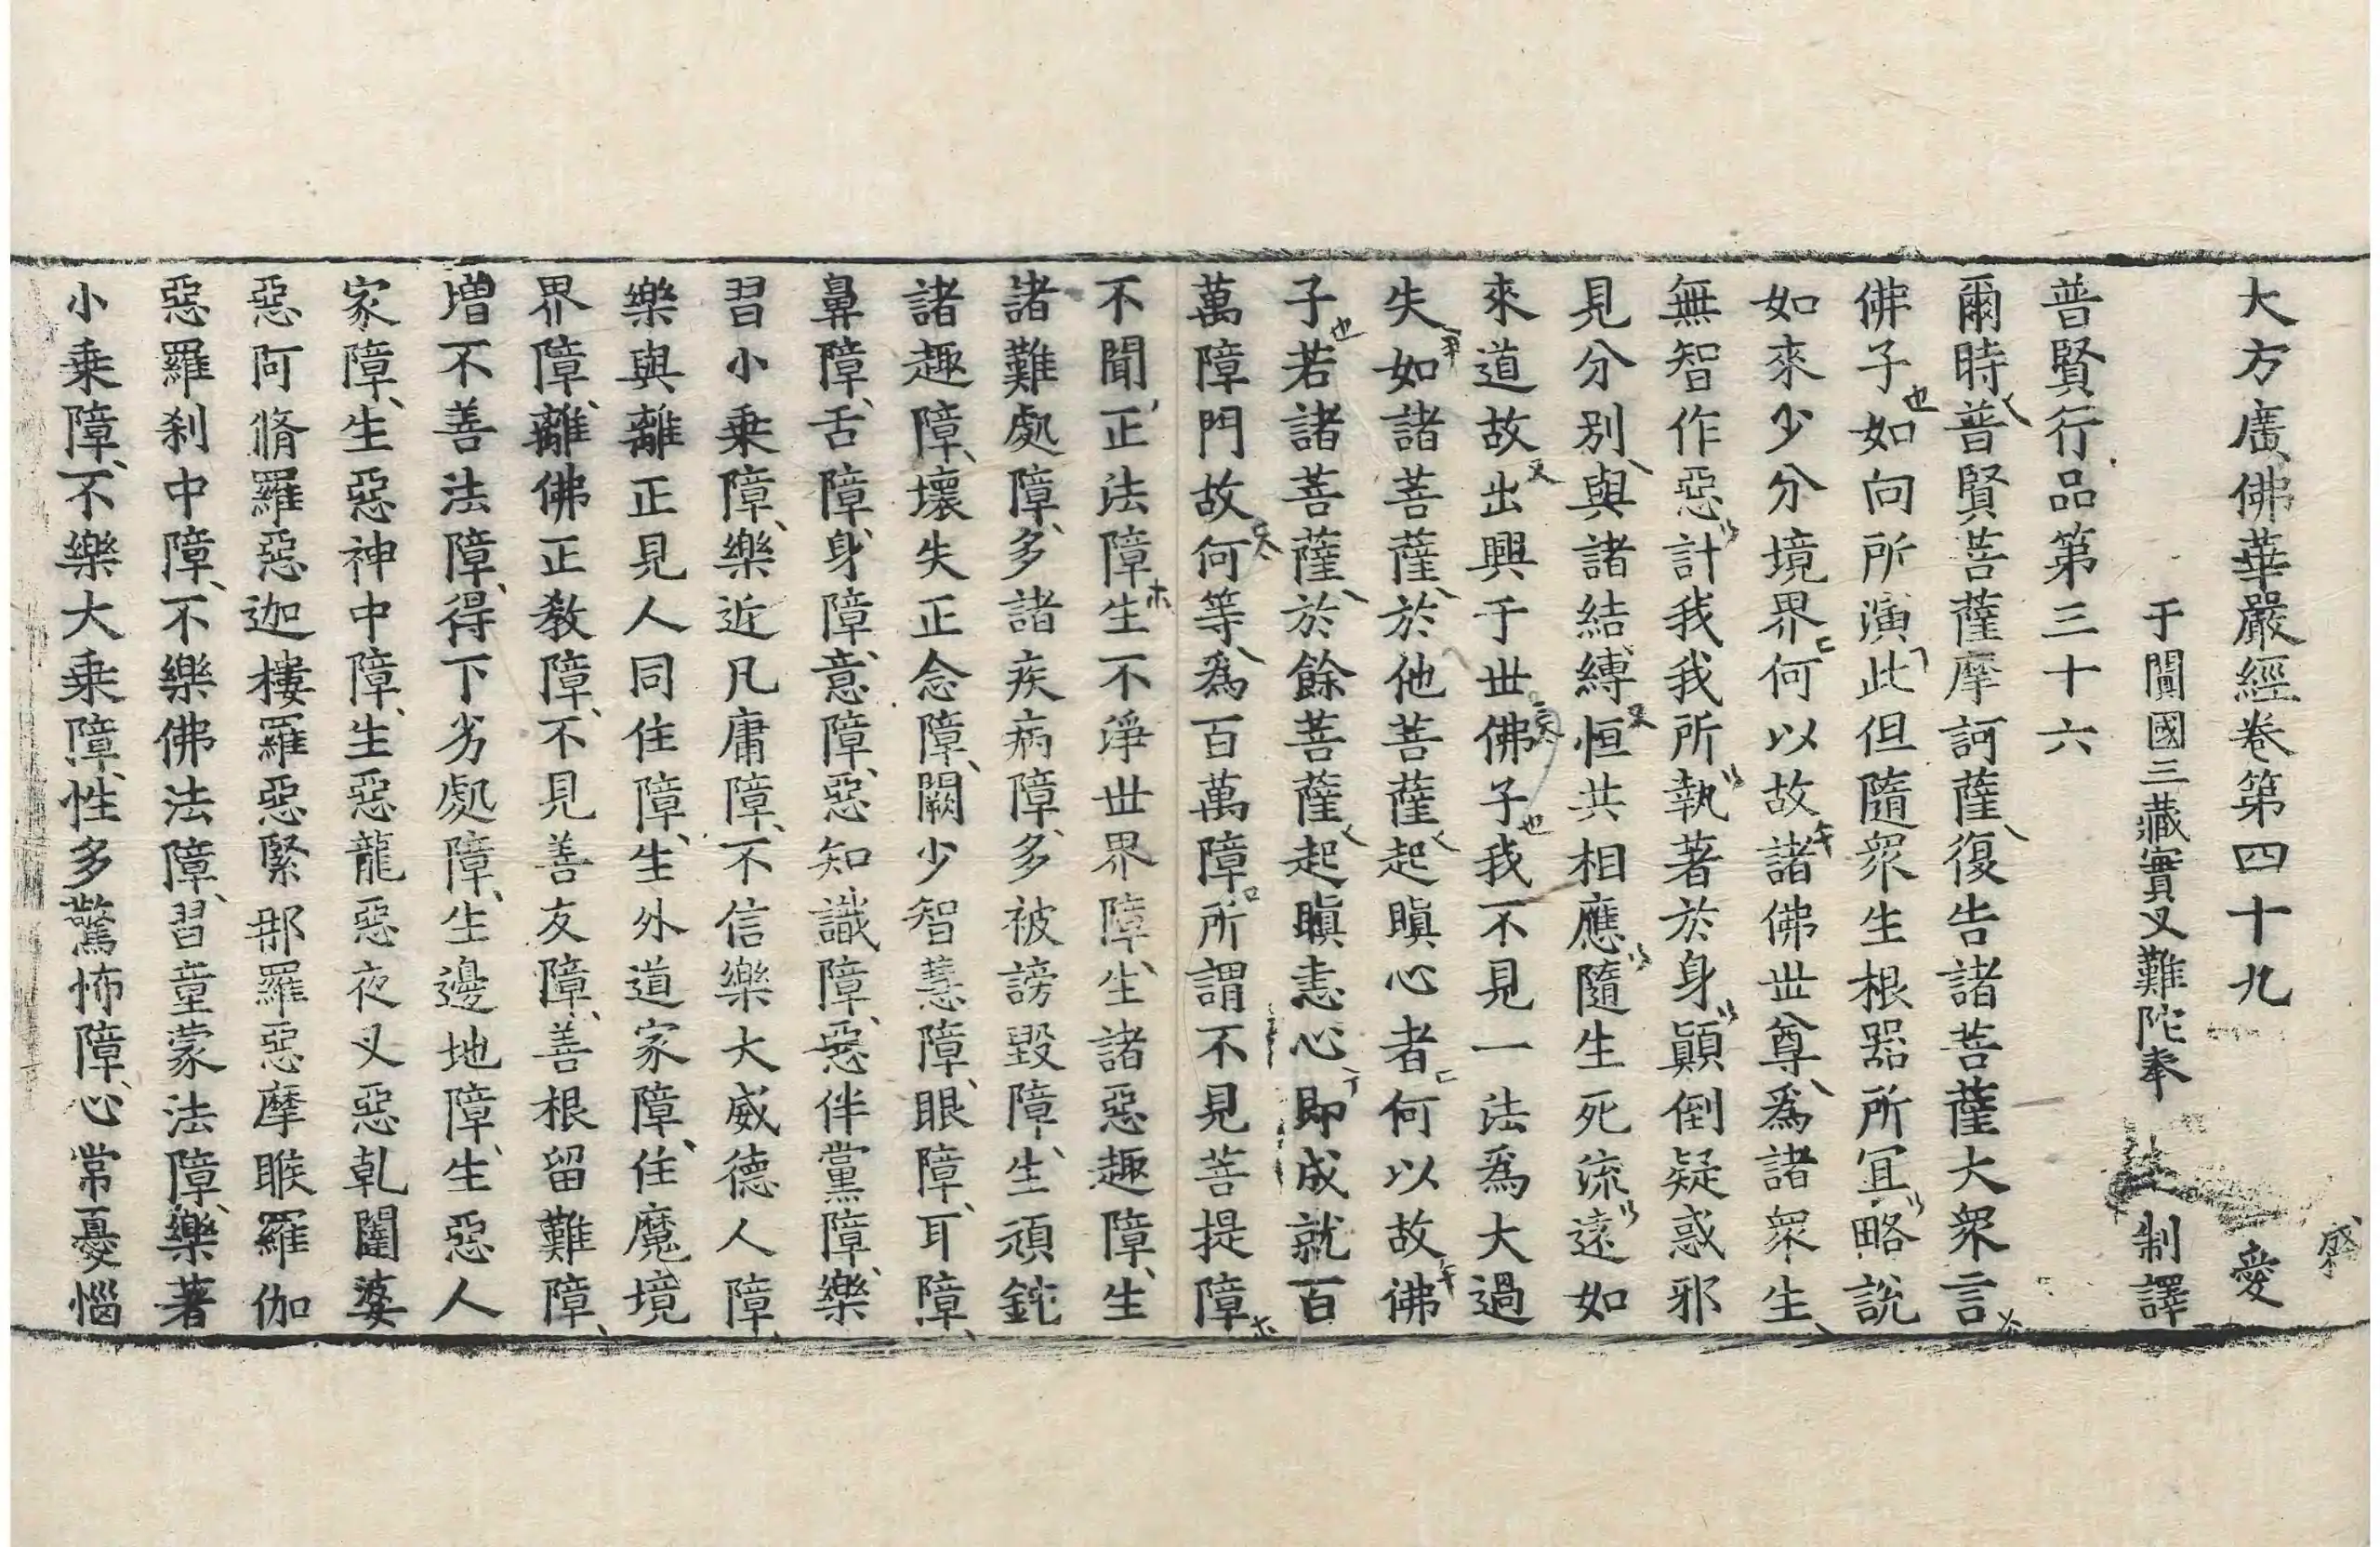 大方廣佛華嚴經卷第四十九 愛
于闐國三藏實叉難陀奉 制譯
普賢行品第三十六
爾時普賢菩薩摩訶薩復告諸菩薩大衆言
佛子如向所演此但隨衆生根器所冝略說
如來少分境界何以故諸佛世尊爲諸衆生
無智作惡計我我所執著於身顚倒疑惑邪
見分別與諸結縛恒共相應隨生死流遠如
來道故出興于世佛子我不見一法爲大過
失如諸菩薩於他菩薩起瞋心者何以故佛
子若諸菩薩於餘菩薩起瞋恚心即成就百
萬障門故何等爲百萬障所謂不見菩提障
不聞正法障生不淨世界障生諸惡趣障生
諸難處障多諸疾病障多被謗毀障生頑鈍
諸趣障壞失正念障闕少智慧障眼障耳障
鼻障舌障身障意障惡知識障惡伴黨障樂
習小乗障樂近凡庸障不信樂大威德人障
樂與離正見人同住障生外道家障住魔境
界障離佛正教障不見善友障善根留難障
增不善法障得下劣處障生邊地障生惡人
家障生惡神中障生惡龍惡夜叉惡乹闥婆
惡阿脩羅惡迦樓羅惡緊那羅惡摩睺羅伽
惡羅刹中障不樂佛法障習童蒙法障樂著
小乗障不樂大乗障性多驚怖障心常憂惱